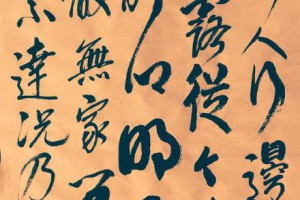 人行邊
露從今
明
散無家問
不達況乃